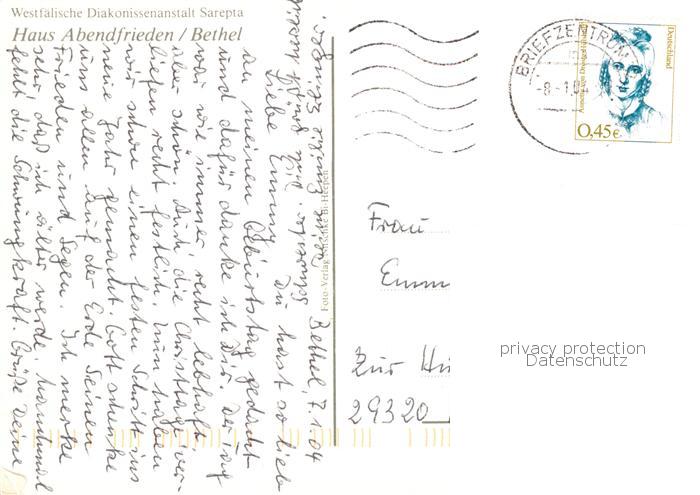 Westfälische Diakonissenanstalt Sarepta
Haus Abendfrieden / Bethel
Bethel, 7.1.04
Liebe Emmy! Du hast so lieb
an meinen Geburtstag gedacht
und dafür danke ich Dir. Der Tag
war wie immer recht lebhaft,
aber schön. Auch die Christtage ver-
liefen recht festlich. Nun haben
wir schon einen festen Schritt ins
neue Jahr gemacht. Gott schenke
uns allen auf der Erde Seinen
Frieden und Segen. Ich merke
sehr, daß ich älter werde, manchmal
fehlt die Schwungkraft. Grüße Deine
Foto-Verlag Mischke Bi-Heepen
BRIEFZENTRUM
-8.-1.04
Deutschland
Annette von Droste-Hülshoff
0,45€
Frau
Emm
Zur Hü
29320
privacy protection
Datenschutz